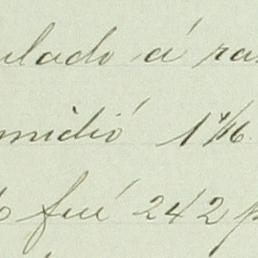 ulado á ra
midió 1 4/16
o fué 242 p